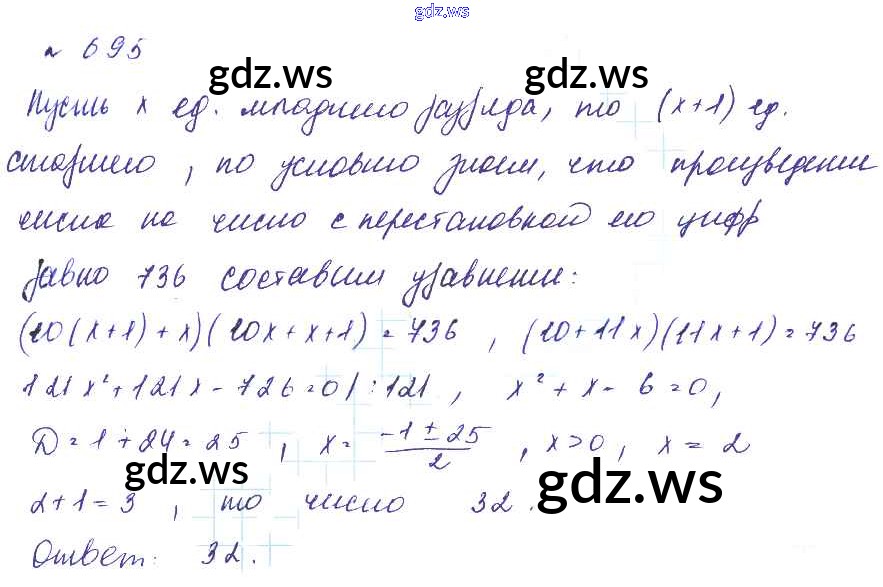 gdz.ws
№ 695
gdz.ws gdz.ws
Пусть x ед. младшего разряда, то (x+1) ед.
старшего, по условию знаем, что произведение
числа на число с перестановкой его цифр
равно 736 составим уравнение:
(10(x+1)+x)(10x+x+1)=736, (10+11x)(11x+1)=736
121x²+121x-726=0/:121, x²+x-6=0,
D=1+24=25, x= (-1±25)/2, x>0, x=2
gdz.ws gdz.ws
2+1=3, то число 32.
Ответ: 32.